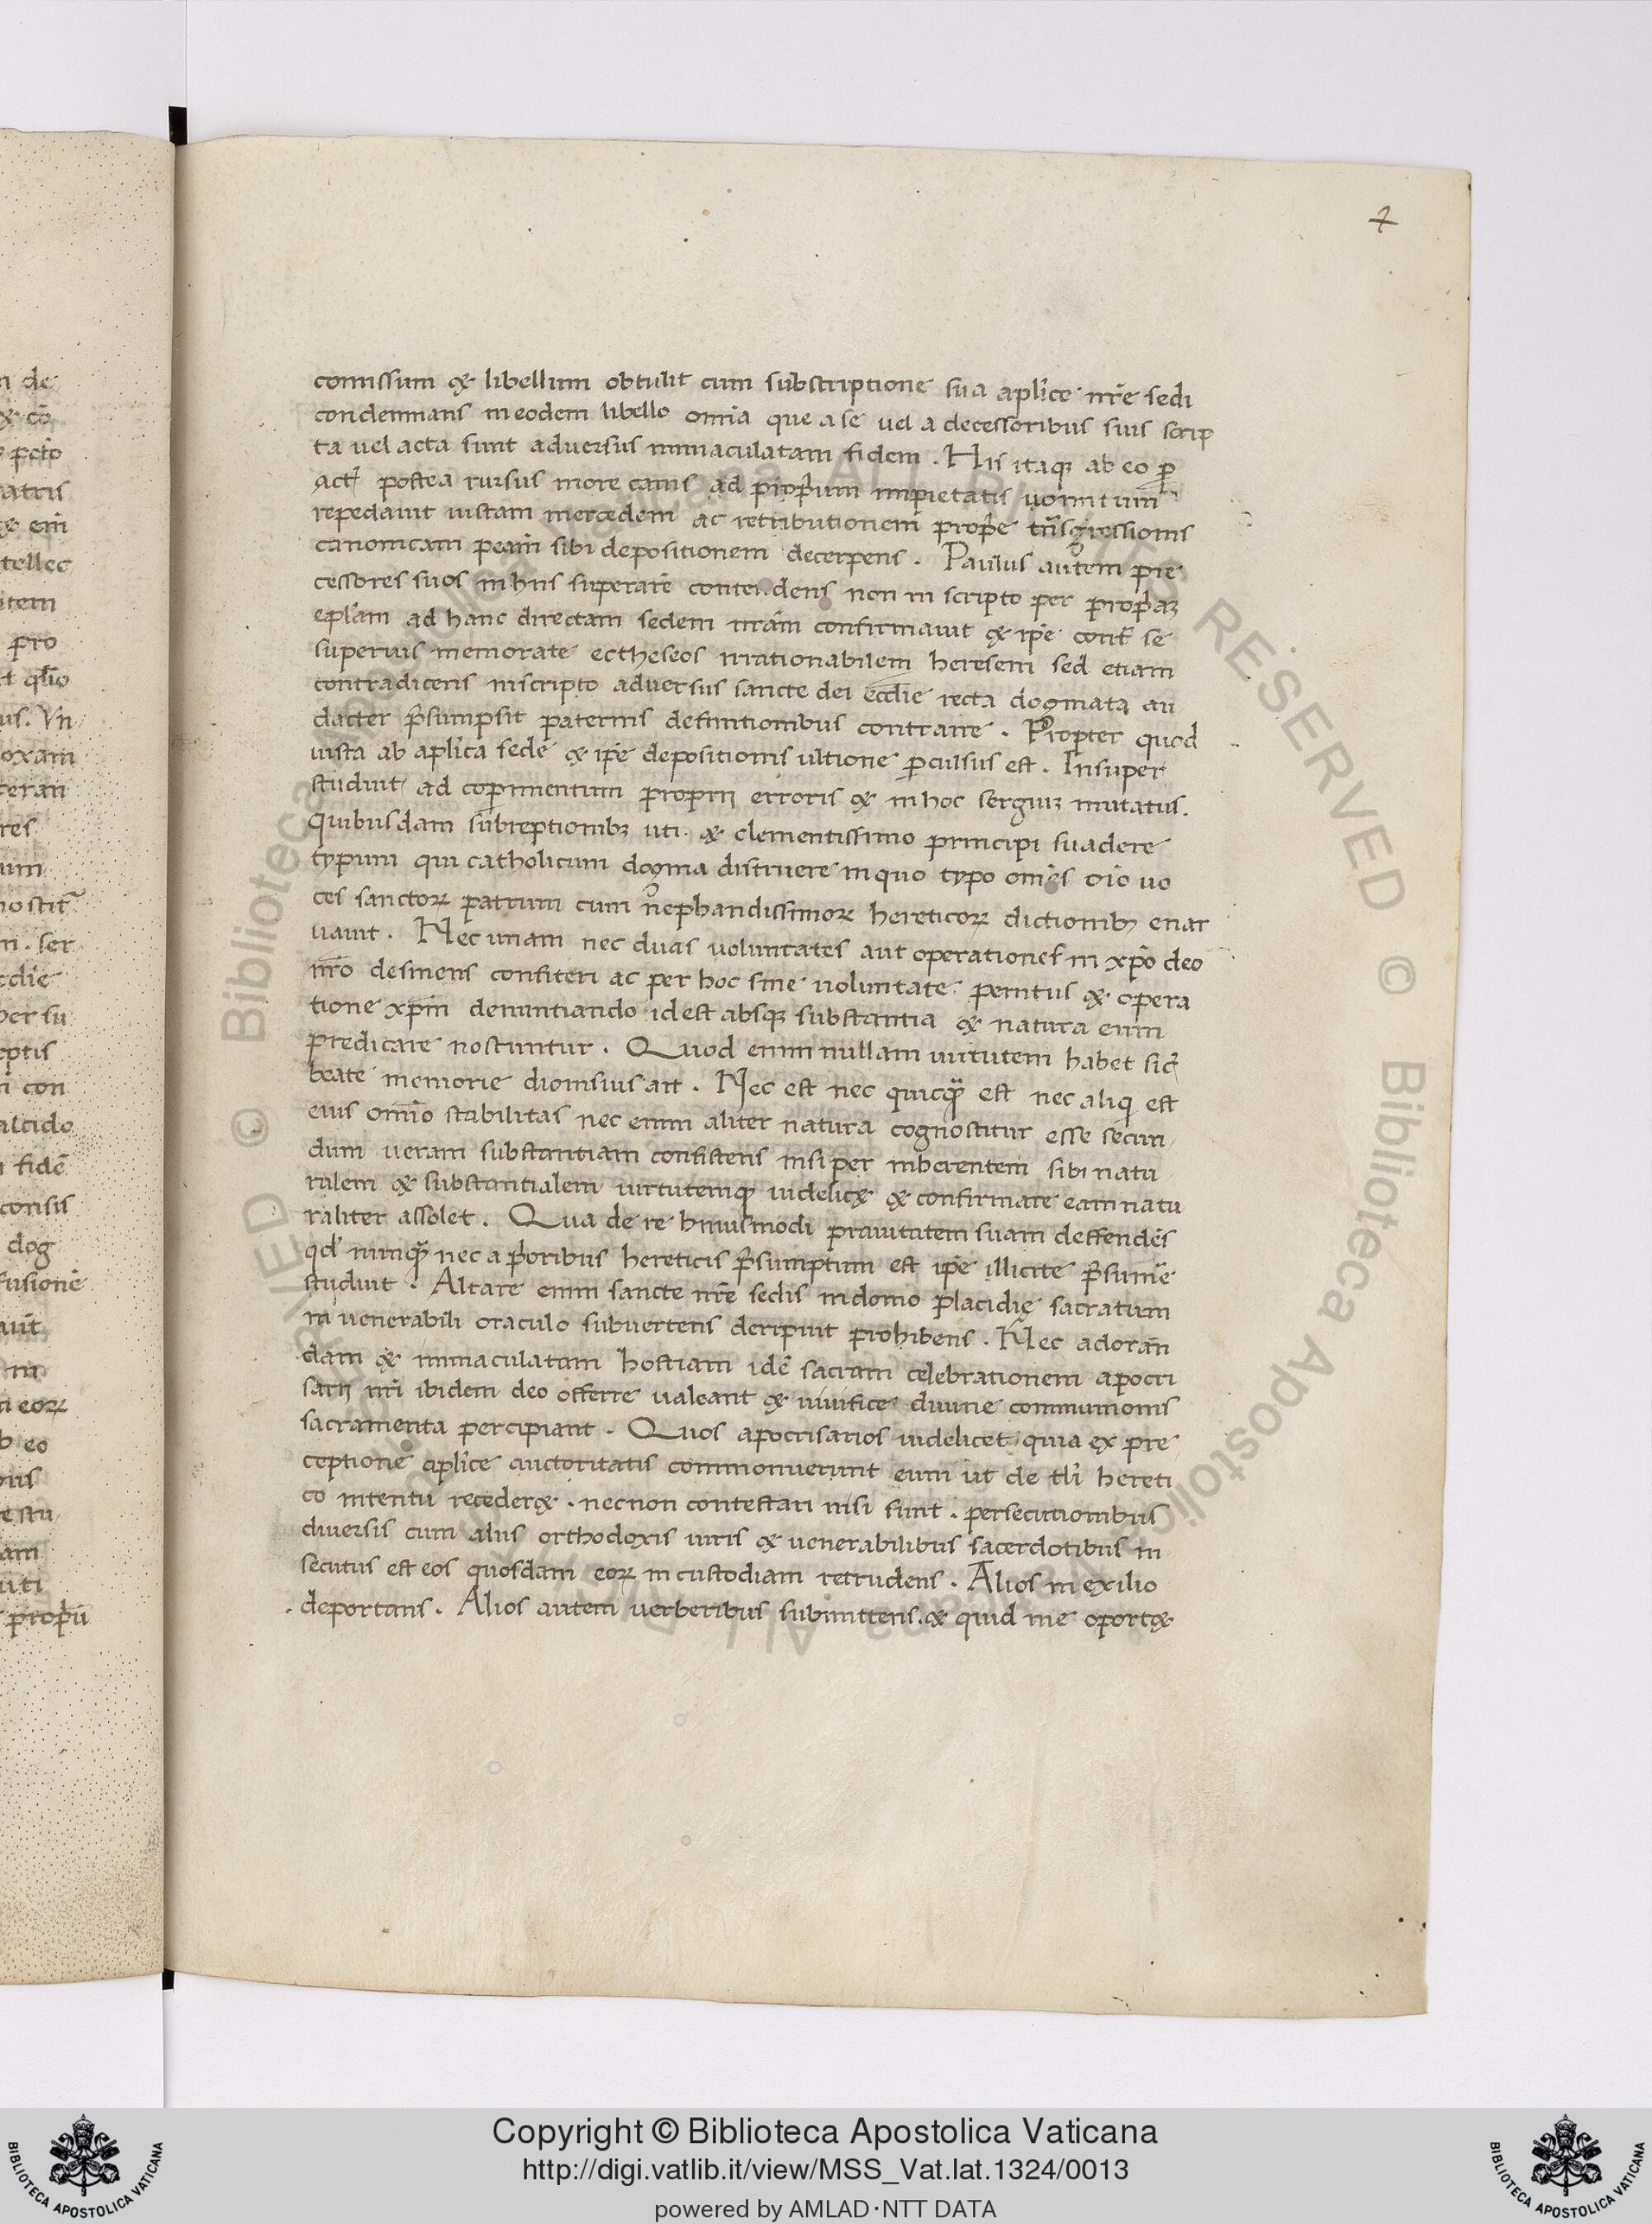 7
comissum & libellum obtulit cum subscriptione sua aplice nre sedi
condemnans in eodem libello omnia que a se vel a decessoribus suis scrip
ta vel acta sunt adversus immaculatam fidem. His itaq; ab eo p
act postea rursus more canis ad proprium impietatis vomitum
repedavit iustam mercedem ac retributionem proprie tnsgressionis
canonicam penam sibi depositionem decerpens. Paulus autem pre
cessores suos in hiis superare contendens non in scripto per propriaz
eplam ad hanc directam sedem nram confirmavit & ipe cont se
superius memorate ectheseos irrationabilem heresem sed etiam
contradicens inscripto adversus sancte dei ecclie recta dogmata au
dacter psumpsit paternis definitionibus contraire. Propter quod
iusta ab aplica sede & ipe depositionis ultione pculsus est. Insuper
studuit ad coperimentum proprii erroris & in hoc sergiuz imitatus.
quibusdam subreptionibz uti. & clementissimo principi suadere
typum qui catholicum dogma distruere in quo typo omes oio vo
ces sanctorz patrum cum nephandissimorz hereticorz dictionibz enar
vavit. Nec unam nec duas voluntates aut operationes in xpo deo
nro desinens confiteri ac per hoc sine voluntate penitus & opera
tione xpm denuntiando idest absqz substantia & natura eum
predicare noscuntur. Quod enim nullam virtutem habet sic
beate memorie dionisius ait. Nec est nec quicq est nec aliq est
eius omnio stabilitas nec enim aliter natura cognoscitur esse secun
dum veram substantiam consistens nisi per inherentem sibi natu
ralem & substantialem virtutemq; videlic& & confirmare eam natu
raliter assolet. Qua de re huiusmodi pravitatem suam deffendes
qd nunq nec a prioribus hereticis psumptum est ipe illicite psume
studuit. Altare enim sancte nre sedis in domo placidie sacratum
in venerabili oraculo subvertens deripuit prohibens. Nec adoran
dam & immaculatam hostiam ide sacram celebrationem apocri
sarii nri ibidem deo offerre valeant & vivifice divine communionis
sacramenta percipiant. Quos apocrisarios videlicet quia ex pre
ceptione aplice auctoritatis commonuerunt eum ut de tli hereti
co intentu receder&. necnon contestari nisi sunt. persecutionibus
diversis cum aliis orthodoxis viris & venerabilibus sacerdotibus in
secutus est eos quosdam eorz in custodiam retrudens. Alios in exilio
deportans. Alios autem verberibus submittens. & quid me oport&
Copyright © Biblioteca Apostolica Vaticana
http://digi.vatlib.it/view/MSS_Vat.lat.1324/0013
powered by AMLAD·NTT DATA
BIBLIOTECA APOSTOLICA VATICANA
BIBLIOTECA APOSTOLICA VATICANA